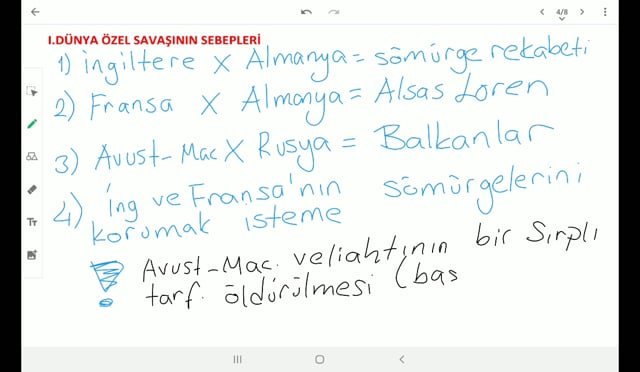 4/8
I.DÜNYA ÖZEL SAVAŞININ SEBEPLERİ
1) İngiltere X Almanya = sömürge rekabeti
2) Fransa X Almanya = Alsas Loren
3) Avust-Mac X Rusya = Balkanlar
4) İng ve Fransa'nın sömürgelerini
korumak isteme
! Avust-Mac. veliahtının bir Sırplı
tarf. öldürülmesi (bas